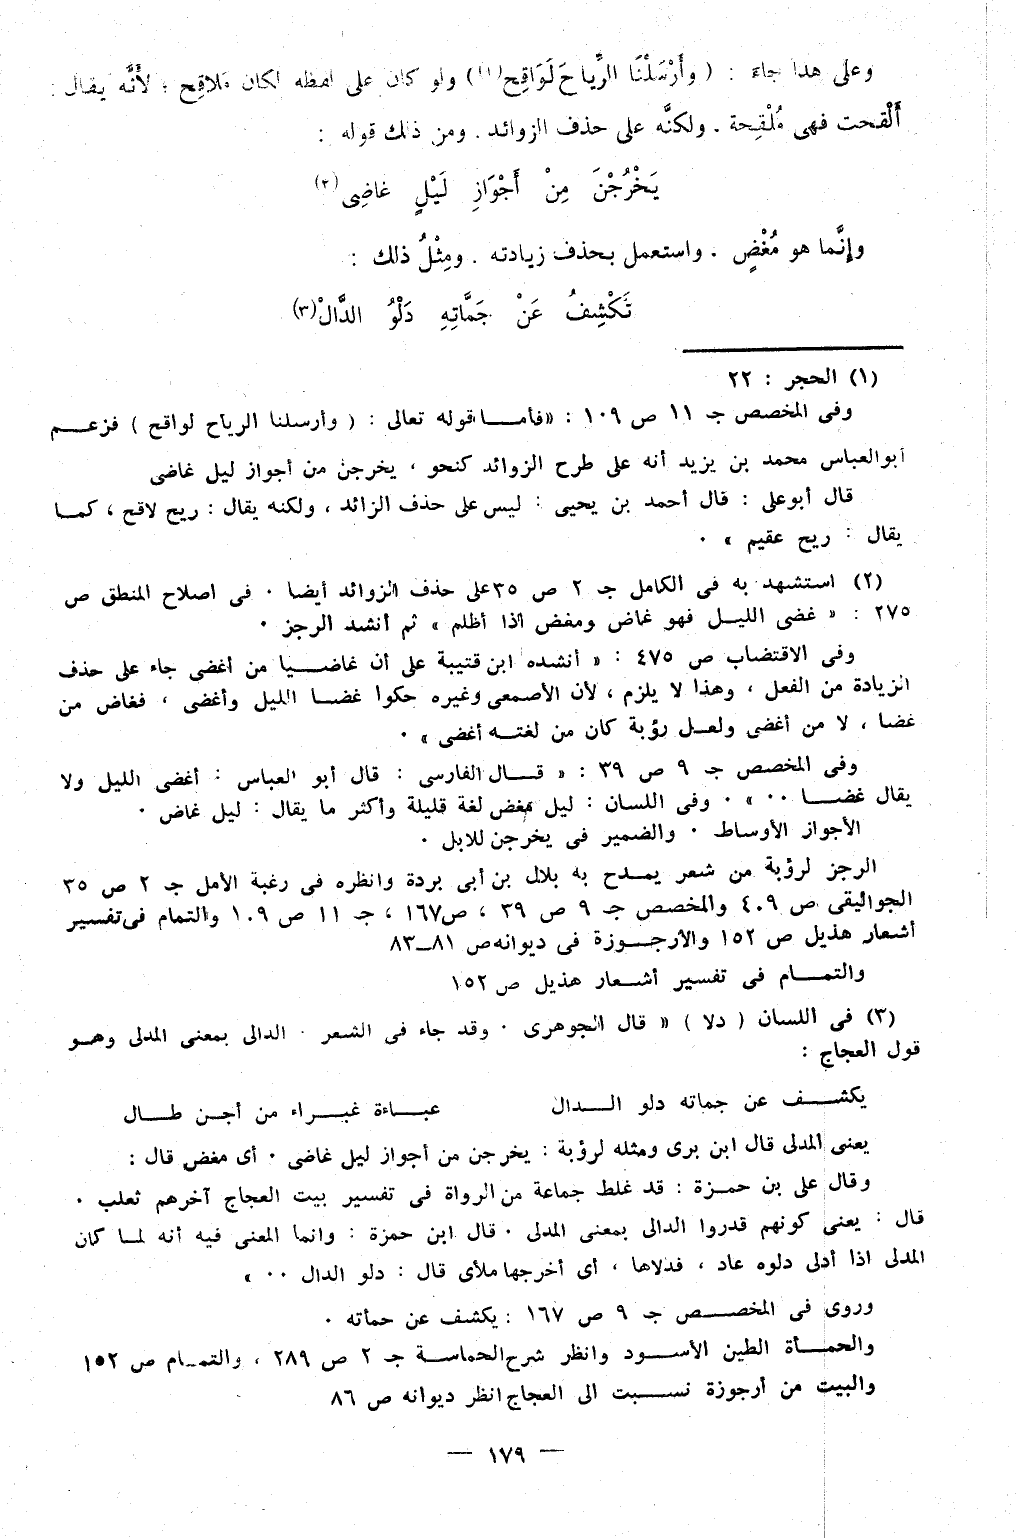 وعلى هذا جاء : ( وأَرْسَلْنَا الرِّياحَ لَوَاقِح(١)) ولو كان على لفظه لكان مَلاقِح ؛ لأَنَّه يقال :
أَلْقحت فهى مُلْقِحة . ولكنَّه على حذف الزوائد . ومن ذلك قوله :
يَخْرُجْنَ مِنْ أَجْوَازِ لَيْلٍ غاضِى(٢)
وإنَّما هو مُغْضٍ . واستعمل بحذف زيادته . ومِثْلُ ذلك :
تَكْشِفُ عَنْ جَمَّاتِهِ دَلْوُ الدَّالْ(٣)
(١) الحجر : ٢٢
وفى المخصص جـ ١١ ص ١٠٩ : «فأما قوله تعالى : ( وأرسلنا الرياح لواقح ) فزعم
أبو العباس محمد بن يزيد أنه على طرح الزوائد كنحو ، يخرجن من أجواز ليل غاضى
قال أبوعلى : قال أحمد بن يحيى : ليس على حذف الزائد ، ولكنه يقال : ريح لاقح ، كما
يقال : ريح عقيم » ٠
(٢) استشهد به فى الكامل جـ ٢ ص ٣٥ على حذف الزوائد أيضا ٠ فى اصلاح المنطق ص
٢٧٥ : « غضى الليل فهو غاض ومغض اذا أظلم » ثم أنشد الرجز ٠
وفى الاقتضاب ص ٤٧٥ : « أنشده ابن قتيبة على أن غاضيا من أغضى جاء على حذف
الزيادة من الفعل ، وهذا لا يلزم ، لأن الأصمعى وغيره حكوا غضا الليل وأغضى ، فغاض من
غضا ، لا من أغضى ولعل رؤبة كان من لغته أغضى » ٠
وفى المخصص جـ ٩ ص ٣٩ : « قال الفارسى : قال أبو العباس : أغضى الليل ولا
يقال غضا ٠٠ » ٠ وفى اللسان : ليل مغض لغة قليلة وأكثر ما يقال : ليل غاض ٠
الأجواز الأوساط ٠ والضمير فى يخرجن للابل ٠
الرجز لرؤبة من شعر يمدح به بلال بن أبى بردة وانظره فى رغبة الأمل جـ ٢ ص ٣٥
الجواليقى ص ٤٠٩ والمخصص جـ ٩ ص ٣٩ ، ص١٦٧ ، جـ ١١ ص ١٠٩ والتمام فى تفسير
أشعار هذيل ص ١٥٢ والأرجوزة فى ديوانه ص ٨١ــ٨٣
والتمام فى تفسير أشعار هذيل ص ١٥٢
(٣) فى اللسان ( دلا ) « قال الجوهرى ٠ وقد جاء فى الشعر ٠ الدالى بمعنى المدلى وهو
قول العجاج :
يكشف عن جماته دلو الدال عباءة غبراء من أجن طال
يعنى المدلى قال ابن برى ومثله لرؤبة : يخرجن من أجواز ليل غاضى ٠ أى مغض قال :
وقال على بن حمزة : قد غلط جماعة من الرواة فى تفسير بيت العجاج آخرهم ثعلب ٠
قال : يعنى كونهم قدروا الدالى بمعنى المدلى ٠ قال ابن حمزة : وانما المعنى فيه أنه لما كان
المدلى اذا أدلى دلوه عاد ، فدلاها ، أى أخرجها ملأى قال : دلو الدال ٠٠ »
وروى فى المخصص جـ ٩ ص ١٦٧ : يكشف عن حمأته ٠
والحمأة الطين الأسود وانظر شرح الحماسة جـ ٢ ص ٢٨٩ ، والتمام ص ١٥٢
والبيت من أرجوزة نسبت الى العجاج انظر ديوانه ص ٨٦
— ١٧٩ —